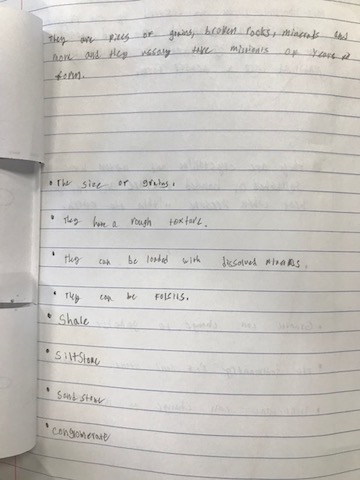 They are pices or grains, broken rocks, minerals and
more and they usualy take minimuis of years to
form.
• The size or grains.
• They have a rough texture.
• They can be loaded with dissolved minerals.
• They can be Fossils.
• Shale
• Siltstone
• Sandstone
• Conglomerate